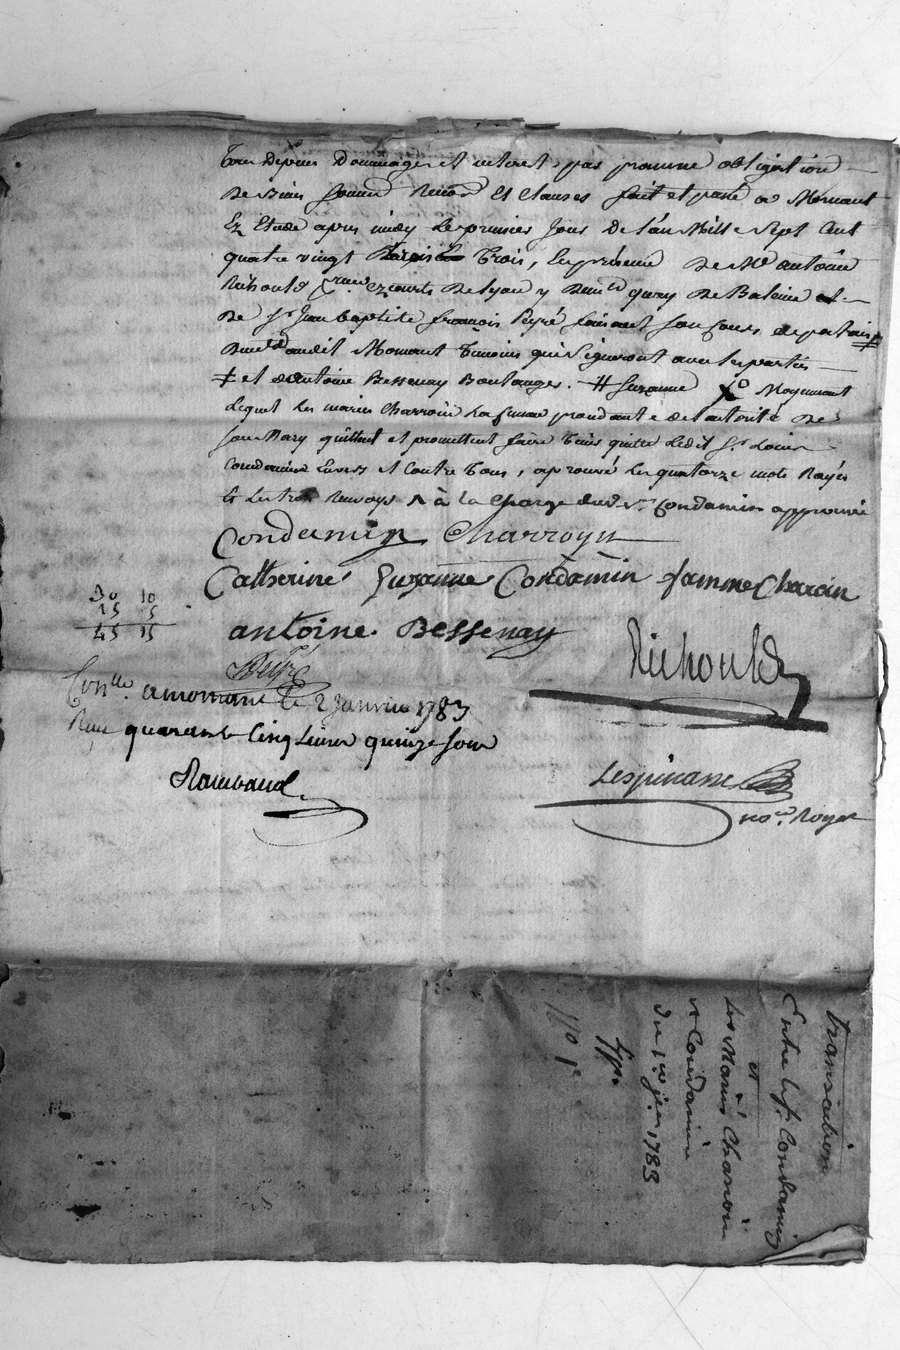 Tous depens Dommages et interet, par promesse obligation
de Biens soumis Renon et clauses fait et passé a Mornant
Ez Etude apres midy Le premier Jour De l'an Mille Sept Cent
quatre vingt Trois, En présence De Me antoine
Richoud ez courts De Lyon y Demt quay De Baleine
De Sr Jean baptiste francois Peyré faisant son cours de pratique ‡
Demt audit Mornant Temoins qui Signeront avec les parties
‡ et d'antoine Bessenay Boulanger. # Suzanne Moyennant
Lequel Les mariés Charroin La femme procedant de l'autorité De
son Mary quittent et promettent faire tenir quitte Ledit Sr Louis
Condamin Envers et Contre Tous, aprouvé Les quatorze mots Rayés
et Les trois Renvoys ʌ à la charge dud. Sr Condamin approuvé
Condamin Charroyn
Catherine Suzanne Condamin famme Charoin
30 10
15 5
45 15
antoine Bessenay
Richoud
Peyré
Conlle. a mornant le 2 Janvier 1783
Reçu quarante Cinq Livres quinze sous
Rambaud
Lespinasse
nore. Royal
Transaction
Entre le Sr. Condamin
et
Les Mariés Charoin
et Condamine
du 1er jer. 1783